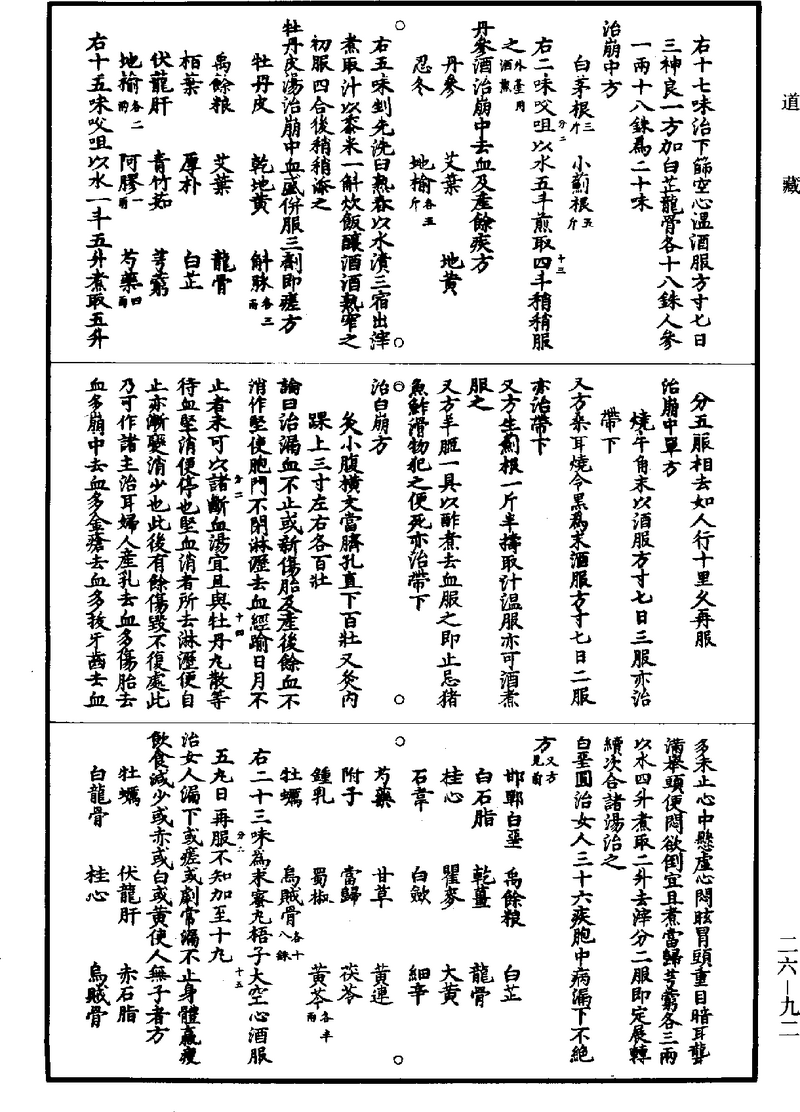 道藏
右十七味治下篩空心溫酒服方寸匕日
三神良一方加白芷龍骨各十八銖人參
一兩十八銖爲二十味
治崩中方
白茅根三斤 小薊根五斤
分二
右二味㕮咀以水五斗煎取四斗稍稍服
十三
之外臺用酒煎
丹參酒治崩中去血及產餘疾方
丹參 艾葉 地黃
忍冬 地榆各五斤
右五味剉先洗臼熟舂以水漬三宿出滓
煮取汁以黍米一斛炊飯釀酒酒熟窄之
初服四合後稍稍添之
牡丹皮湯治崩中血盛併服三劑即瘥方
牡丹皮 乾地黃 斛脉各三兩
禹餘粮 艾葉 龍骨
栢葉 厚朴 白芷
伏龍肝 青竹茹 芎藭
地榆各二兩 阿膠一兩 芍藥四兩
右十五味㕮咀以水一斗五升煮取五升
分五服相去如人行十里久再服
治崩中單方
燒牛角末以酒服方寸匕日三服亦治
帶下
又方桑耳燒令黑爲末酒服方寸匕日二服
亦治帶下
又方生薊根一斤半擣取汁溫服亦可酒煮
服之
又方羊胵一具以酢煮去血服之即止忌猪
魚鮓滑物犯之便死亦治帶下
治白崩方
灸小腹横文當臍孔直下百壯又灸內
踝上三寸左右各百壯
論曰治漏血不止或新傷胎及產後餘血不
消作堅使胞門不閉淋瀝去血經踰日月不
十四
止者未可以諸斷血湯宜且與牡丹丸散等
分二
待血堅消便停也堅血消者所去淋瀝便自
止亦漸變消少也此後有餘傷毀不復處此
乃可作諸主治耳婦人產乳去血多傷胎去
血多崩中去血多金瘡去血多拔牙齒去血
多未止心中懸虛心悶眩冒頭重目暗耳聾
滿舉頭便悶欲倒宜且煮當歸芎藭各三兩
以水四升煮取二升去滓分二服即定展轉
續次合諸湯治之
白堊圓治女人三十六疾胞中病漏下不絕
方又方見前
邯鄲白堊 禹餘粮 白芷
白石脂 乾薑 龍骨
桂心 瞿麥 大黃
石韋 白歛 細辛
芍藥 甘草 黃連
附子 當歸 茯苓
鍾乳 蜀椒 黃芩各半兩
牡蠣 烏賊骨各十八銖
右二十三味爲末蜜丸梧子大空心酒服
分二
五丸日再服不知加至十丸
十五
治女人漏下或瘥或劇常漏不止身體羸瘦
飲食減少或赤或白或黃使人無子者方
牡蠣 伏龍肝 赤石脂
白龍骨 桂心 烏賊骨
二六—九二